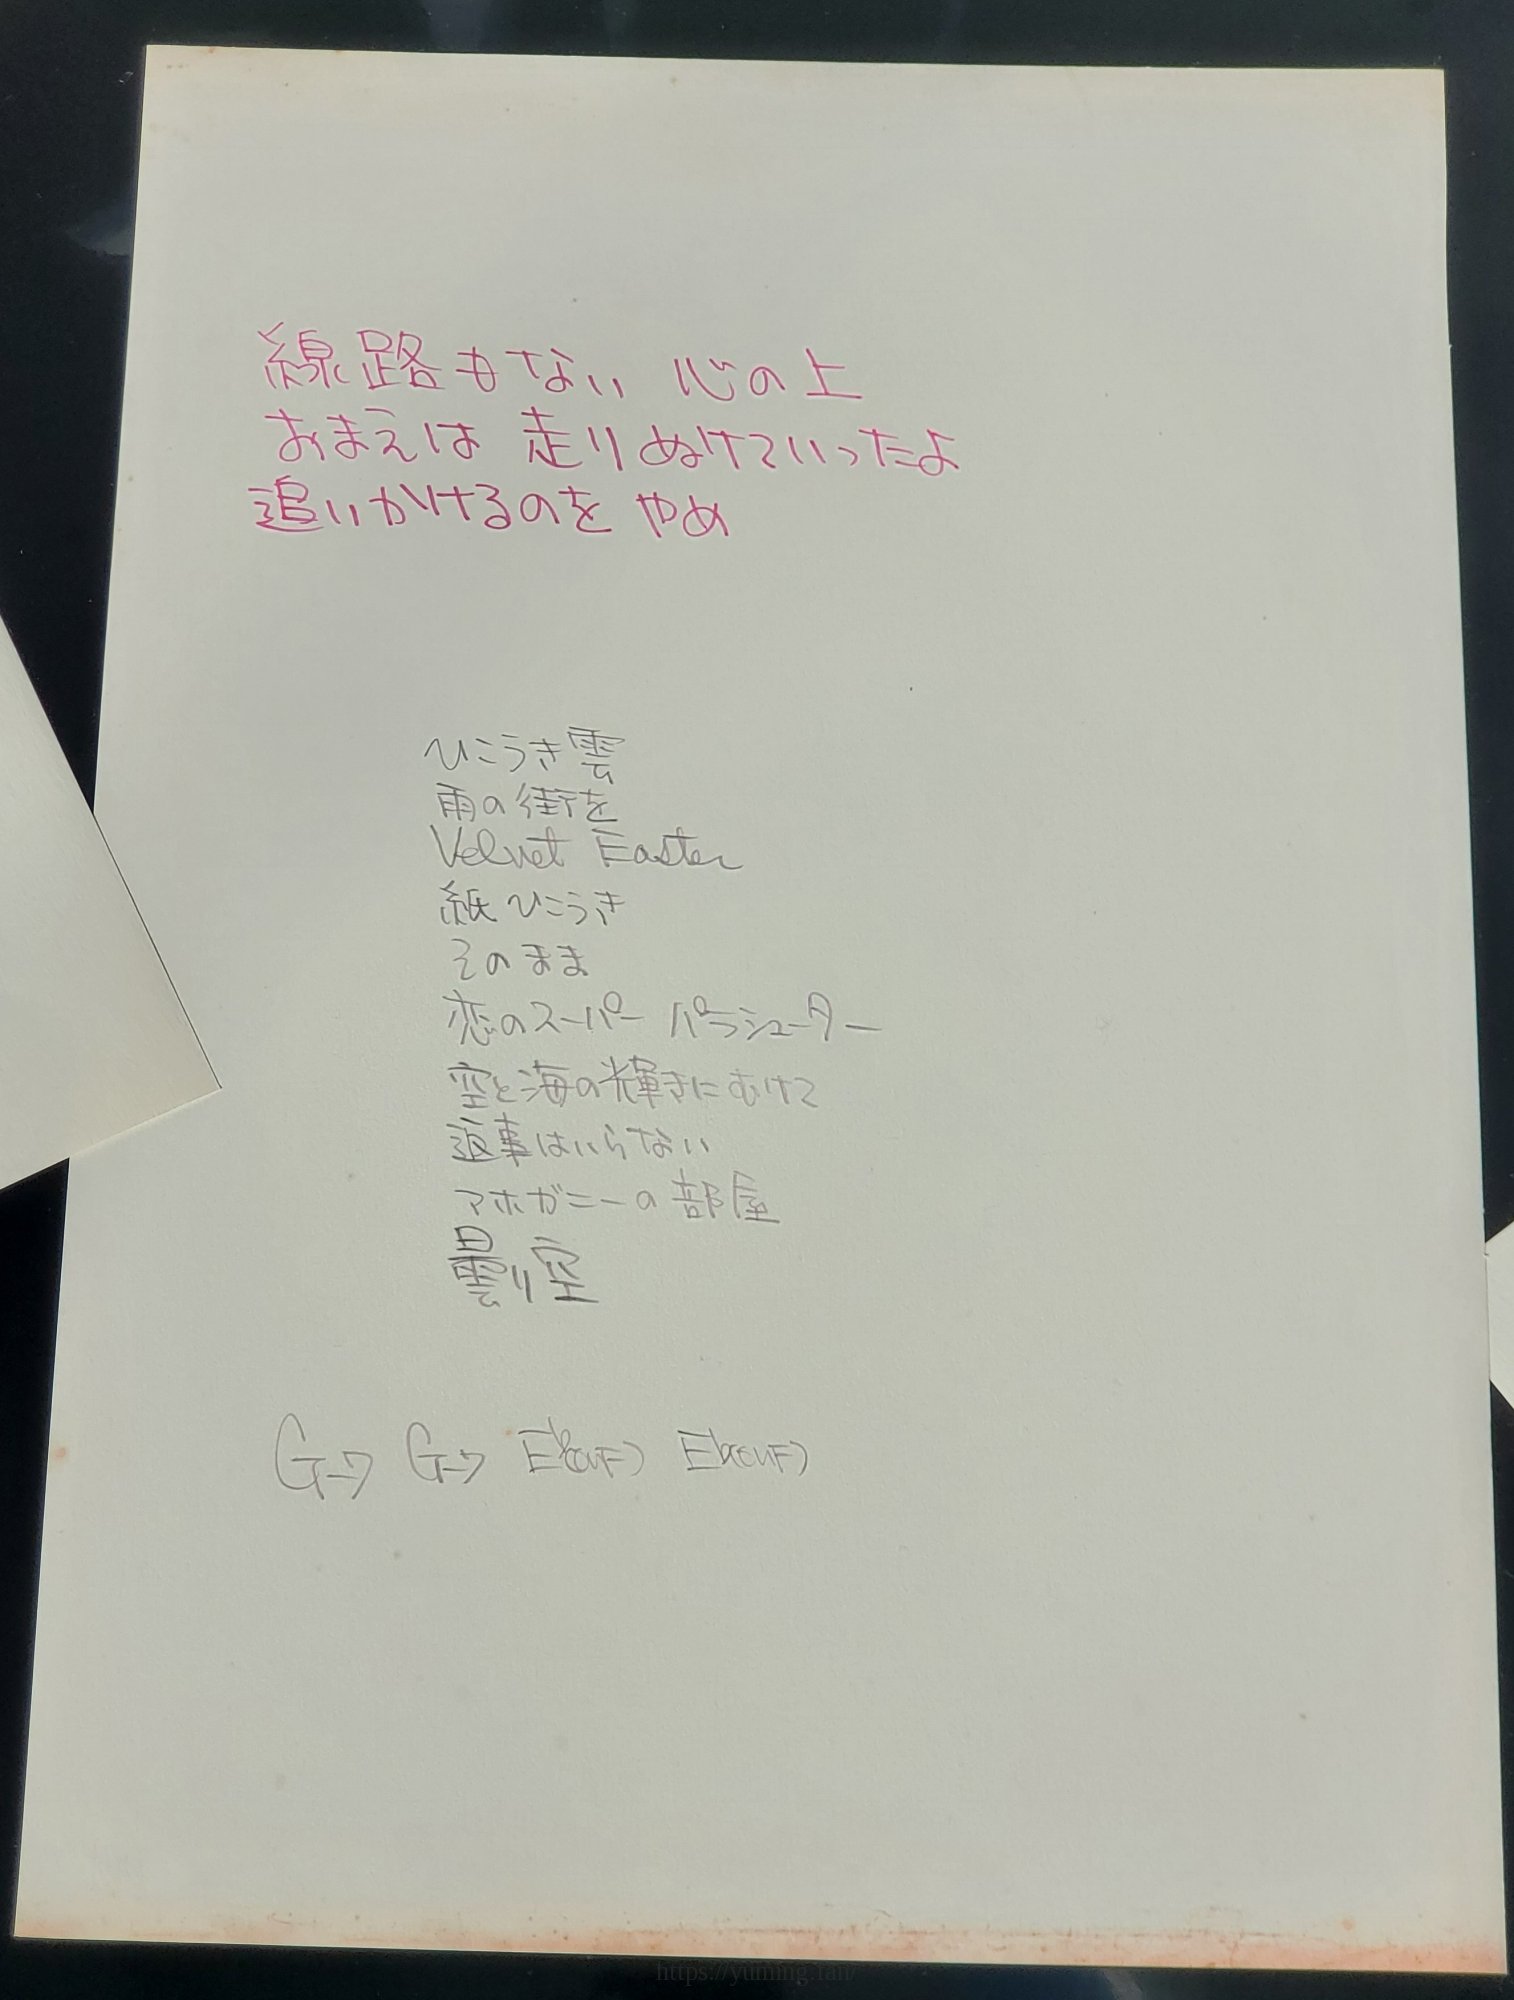 線路もない 心の上
おまえは 走りぬけていったよ
追いかけるのを やめ
ひこうき雲
雨の街を
Velvet Easter
紙ひこうき
そのまま
恋のスーパー パラシューター
空と海の輝きにむけて
返事はいらない
マホガニーの部屋
曇り空
G→7 G→7
https://yuming.fan/